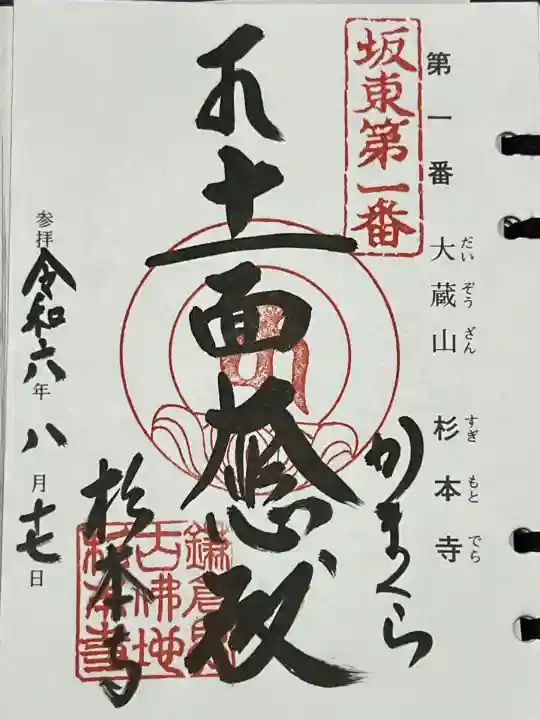 第一番 大蔵山 杉本寺
だいぞうざん すぎもとでら
坂東第一番
かまくら
十一面大悲殿
杉本寺
参拝 令和六年 八月十七日